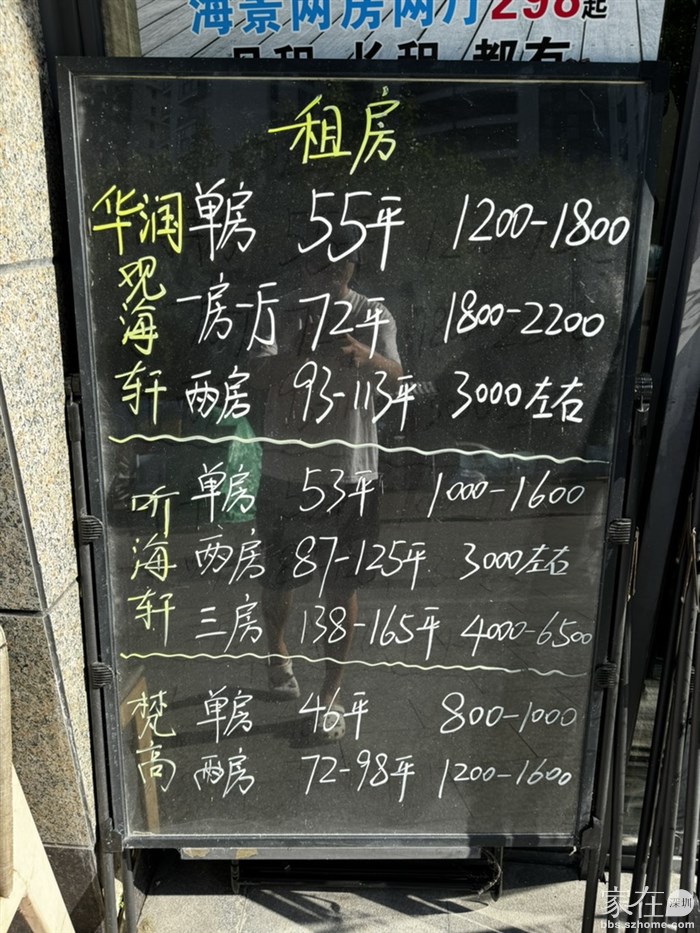 海景两房两厅298起
月租 长租 都有
租房
华润观海轩
单房 55平 1200-1800
一房一厅 72平 1800-2200
两房 93-113平 3000左右
听海轩
单房 53平 1000-1600
两房 87-125平 3000左右
三房 138-165平 4000-6500
梵高
单房 46平 800-1000
两房 72-98平 1200-1600
家在深圳
bbs.szhome.com